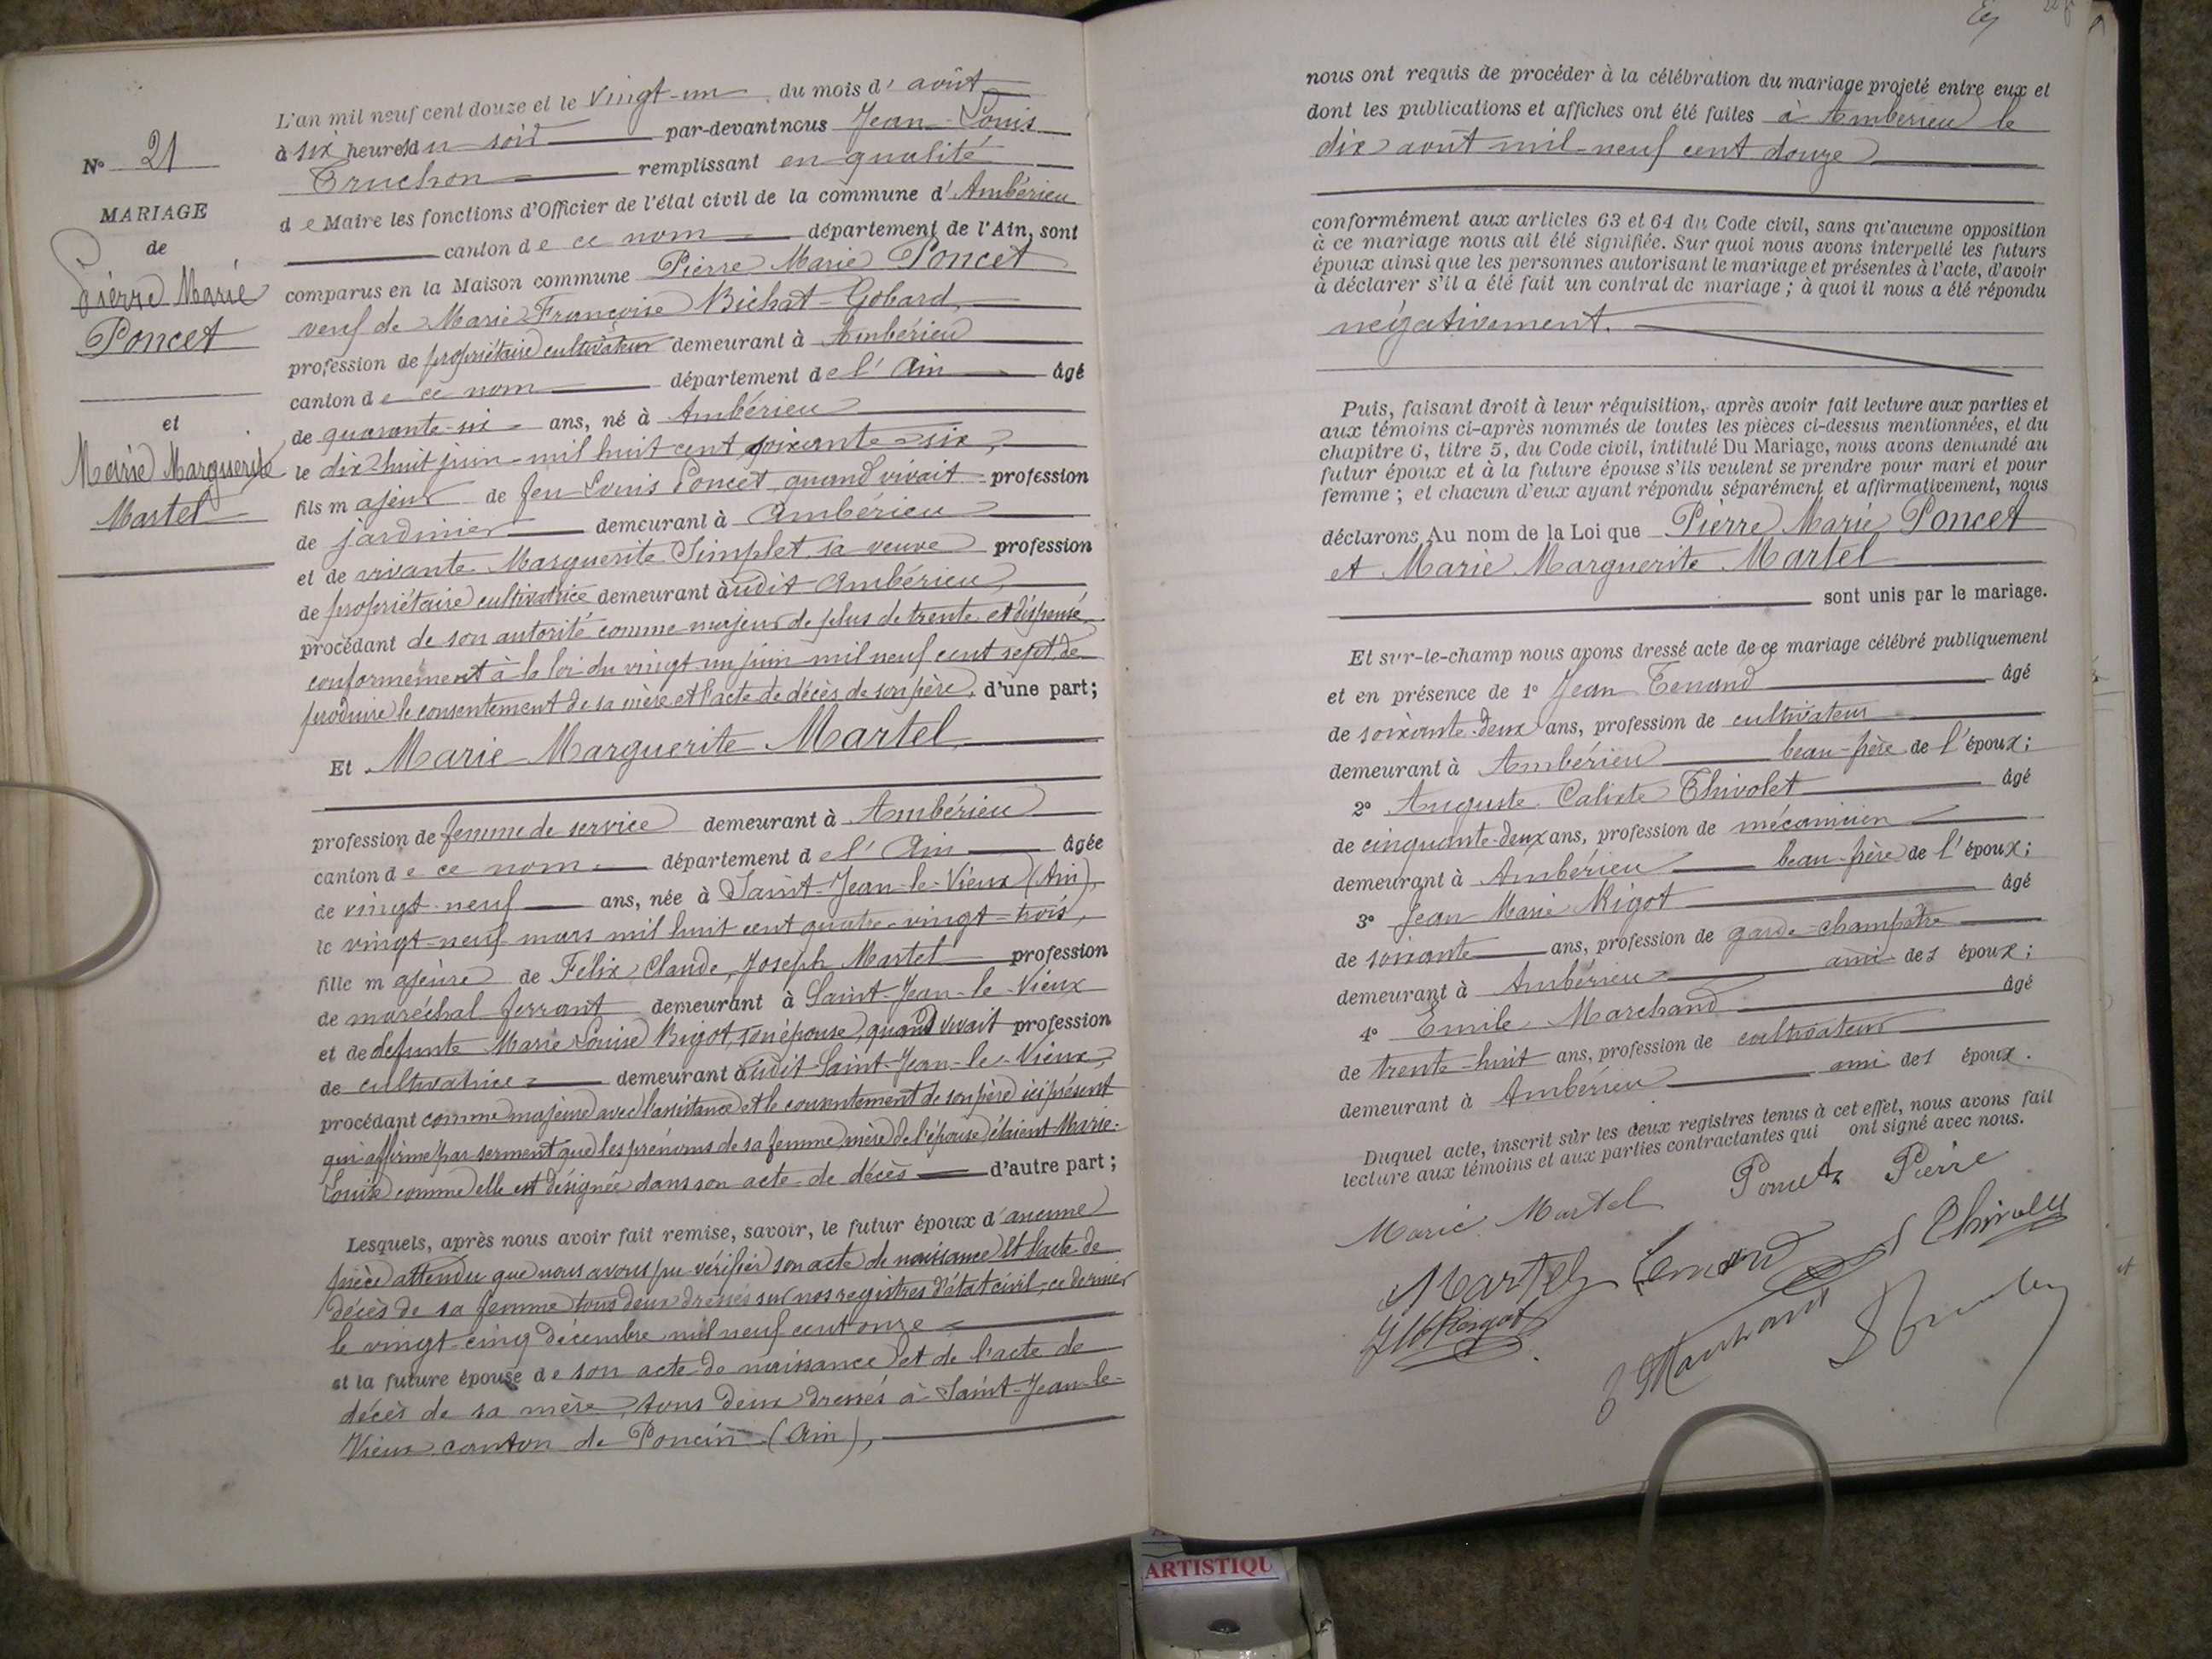 N° 21
MARIAGE
de
Pierre Marie
Poncet
et
Marie Marguerite
Martel
L'an mil neuf cent douze et le vingt-un du mois d'août
à six heures du soir par-devant nous Jean-Louis
Truchon remplissant en qualité
de Maire les fonctions d'Officier de l'état civil de la commune d'Ambérieu
canton de ce nom département de l'Ain, sont
comparus en la Maison commune Pierre Marie Poncet
veuf de Marie Françoise Bichat-Gobard,
profession de propriétaire cultivateur demeurant à Ambérieu
canton de ce nom département de l'Ain âgé
de quarante-six ans, né à Ambérieu
le dix-huit juin mil huit cent soixante-six,
fils majeur de feu Louis Poncet quand vivait profession
de jardinier demeurant à Ambérieu
et de vivante Marguerite Simplet, sa veuve profession
de propriétaire cultivatrice demeurant àudit Ambérieu,
procédant de son autorité comme majeur de plus de trente et dispensé,
conformément à la loi du vingt-un juin mil neuf cent sept, de
produire le consentement de sa mère et l'acte de décès de son père, d'une part;
Et Marie Marguerite Martel,
profession de femme de service demeurant à Ambérieu
canton de ce nom département de l'Ain âgée
de vingt-neuf ans, née à Saint-Jean-le-Vieux (Ain),
le vingt-neuf mars mil huit cent quatre-vingt-trois,
fille majeure de Félix, Claude, Joseph Martel profession
de maréchal ferrant demeurant à Saint-Jean-le-Vieux
et de defunte Marie Louise Bigot, son épouse, quand vivait profession
de cultivatrice demeurant àudit Saint-Jean-le-Vieux,
procédant comme majeure avec l'assistance et le consentement de son père ici présent
qui affirme par serment que les prénoms de sa femme, mère de l'épouse étaient Marie-
Louise comme elle est désignée dans son acte de décès d'autre part;
Lesquels, après nous avoir fait remise, savoir, le futur époux d'aucune
pièce attendu que nous avons pu vérifier son acte de naissance et l'acte de
décès de sa femme tous deux dressés sur nos registres d'état civil, ce dernier
le vingt-cinq décembre mil neuf cent onze
et la future épouse de son acte de naissance et de l'acte de
décès de sa mère, tous deux dressés à Saint-Jean-le-
Vieux canton de Poncin (Ain),
nous ont requis de procéder à la célébration du mariage projeté entre eux et
dont les publications et affiches ont été faites à Ambérieu le
dix août mil-neuf cent douze
conformément aux articles 63 et 64 du Code civil, sans qu'aucune opposition
à ce mariage nous ait été signifiée. Sur quoi nous avons interpellé les futurs
époux ainsi que les personnes autorisant le mariage et présentes à l'acte, d'avoir
à déclarer s'il a été fait un contrat de mariage; à quoi il nous a été répondu
négativement.
Puis, faisant droit à leur réquisition, après avoir fait lecture aux parties et
aux témoins ci-après nommés de toutes les pièces ci-dessus mentionnées, et du
chapitre 6, titre 5, du Code civil, intitulé Du Mariage, nous avons demandé au
futur époux et à la future épouse s'ils veulent se prendre pour mari et pour
femme; et chacun d'eux ayant répondu séparément et affirmativement, nous
déclarons Au nom de la Loi que Pierre Marie Poncet
et Marie Marguerite Martel
sont unis par le mariage.
Et sur-le-champ nous avons dressé acte de ce mariage célébré publiquement
et en présence de 1° Jean Tenand âgé
de soixante-deux ans, profession de cultivateur
demeurant à Ambérieu beau-frère de l'époux;
2° Auguste Calixte Thivolet âgé
de cinquante-deux ans, profession de mécanicien
demeurant à Ambérieu beau-frère de l'époux;
3° Jean Marie Rigot âgé
de soixante ans, profession de garde-champêtre
demeurant à Ambérieu ami des époux;
4° Emile Marchand âgé
de trente-huit ans, profession de cultivateur
demeurant à Ambérieu ami des époux.
Duquel acte, inscrit sur les deux registres tenus à cet effet, nous avons fait
lecture aux témoins et aux parties contractantes qui ont signé avec nous.
Marie Martel Poncet Pierre
Martel Tenand Thivolet
JM Rigot
E Marchand
ARTISTIQU